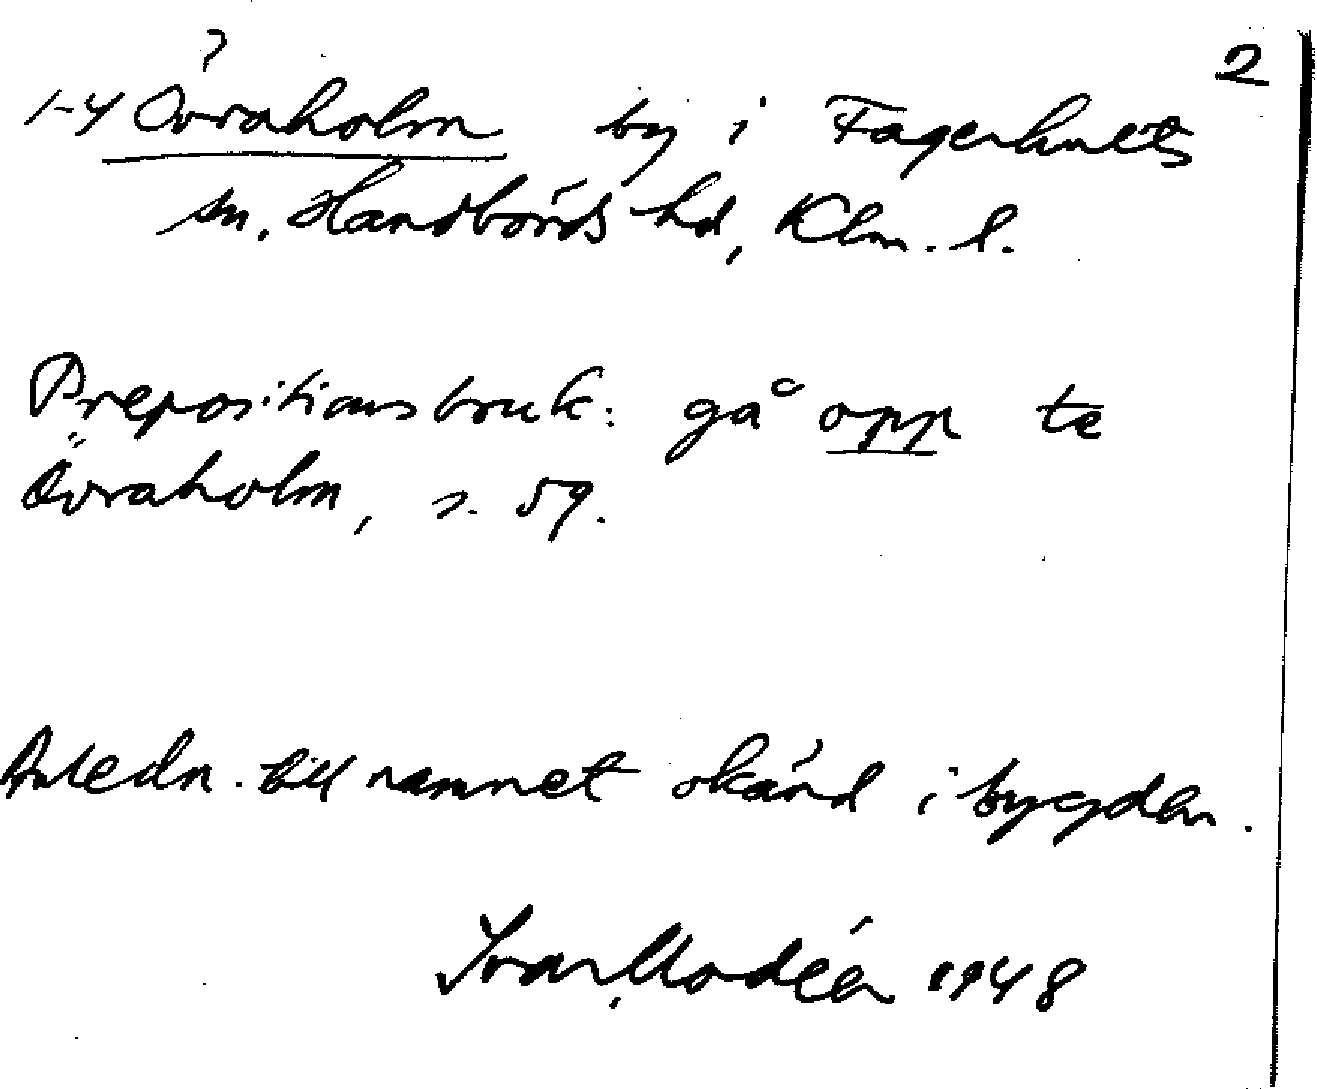 2
?
1-4 Övraholm by i Fagerhults
sn. Handbörds hd, Klm. l.
Prepositionsbruk: gå opp te
Övraholm, s. 59.
Anledn. till namnet okänd i bygden.
Ivar Modéer 1948